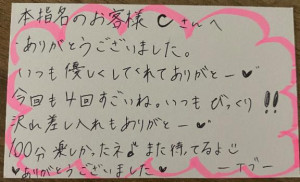 本指名のお客様 Cさんへ
ありがとうございました。
いつも優しくしてくれてありがとー♥
今回も4回すごいね。いつもびっくり!!
沢れ差し入れもありがとー♥
100分楽しかったネ♪また待ってるよ☺
♥ありがとうございました♥